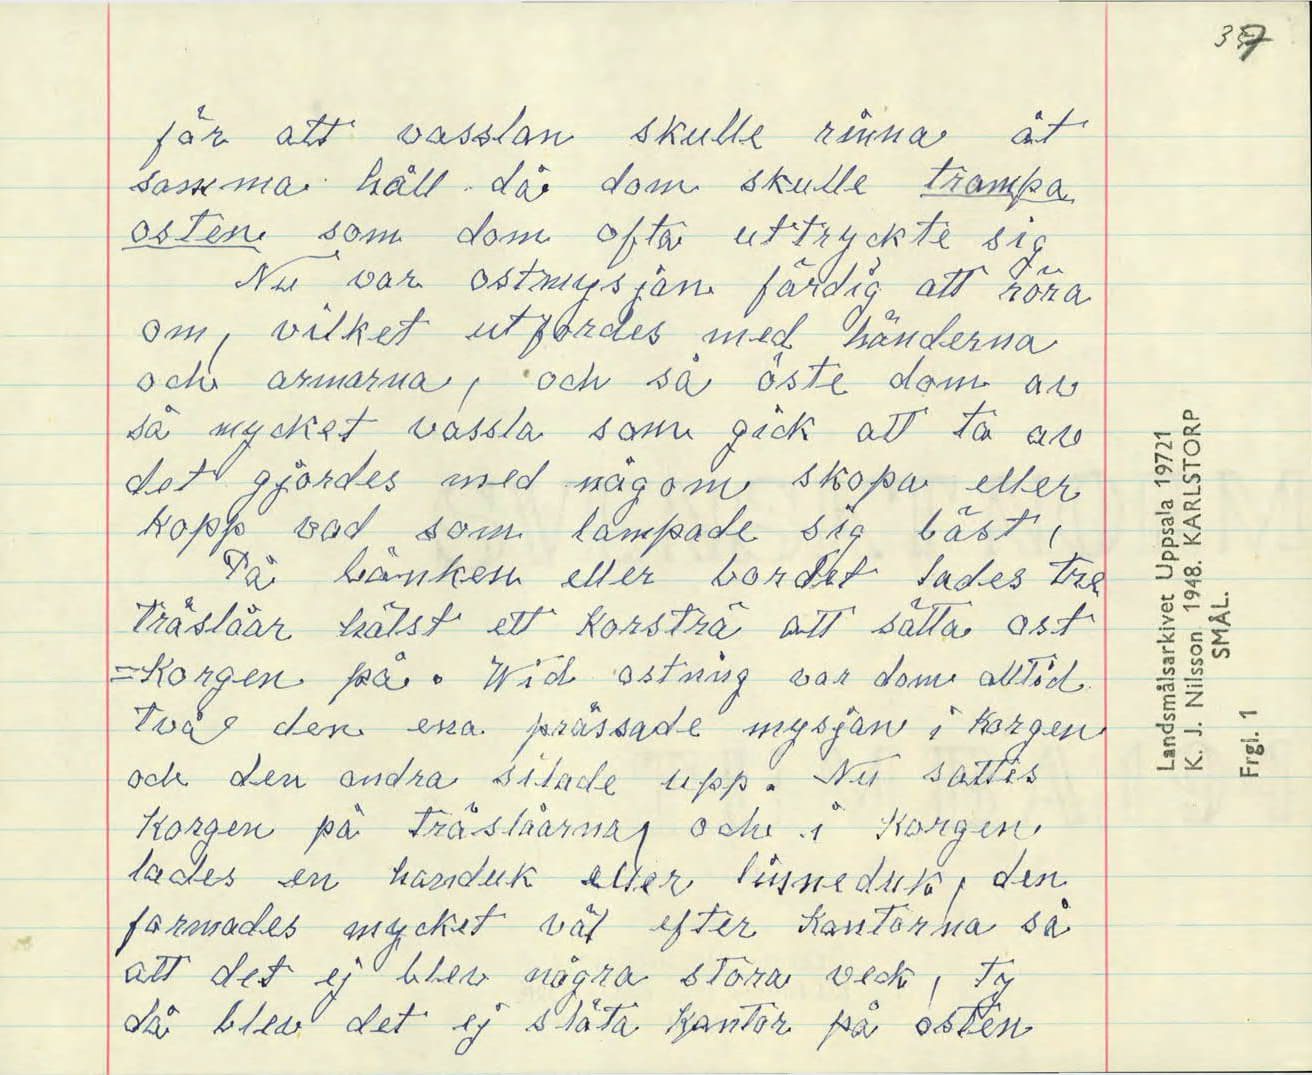 37
för att vasslan skulle rinna åt
samma håll då dom skulle trampa
osten som dom ofta uttryckte sig
Nu var ostmysjan färdig att röra
om, vilket utfördes med händerna
och armarna, och så öste dom av
så mycket vassla som gick att ta av
det gjordes med någom skopa eller
kopp vad som lampade sig bäst,
På bänken eller bordet lades tre
träslåar hälst ett korsträ att sätta ost
=korgen på. Wid ostning var dom alltid
två den ena prässade mysjan i korgen
och den andra silade upp. Nu sattes
korgen på träslåarna, och i korgen
lades en handuk eller linneduk, den
formades mycket väl efter kantorna så
att det ej blev några stora veck, ty
då blev det ej släta kantor på osten
Landsmålsarkivet Uppsala 19721
K. J. Nilsson. 1948. KARLSTORP
SMÅL.
Frgl. 1